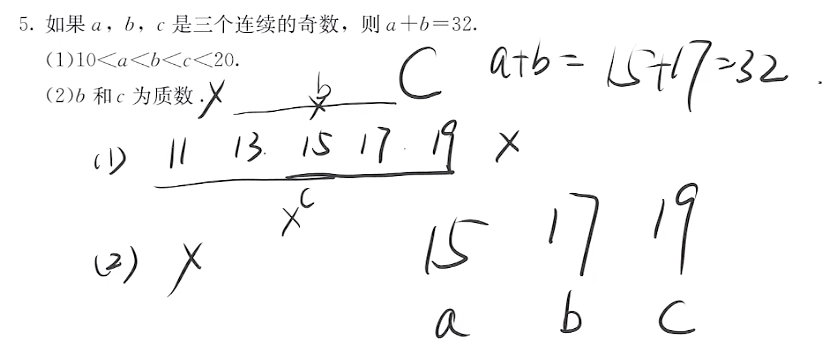 5. 如果a，b，c是三个连续的奇数，则a＋b＝32.
(1)10＜a＜b＜c＜20.
(2)b和c为质数. X
C a+b = 15+17=32 .
b
X
(1) 11 13. 15 17. 19 X
X C
(2) X
15 17 19
a b c